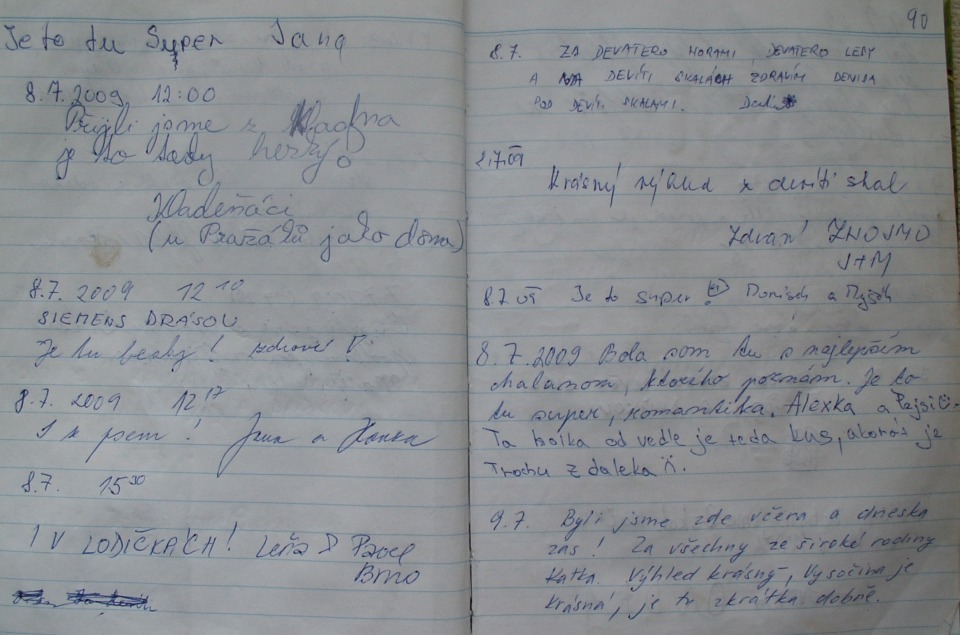 Je to tu Super Jana
8.7.2009, 12:00
Přijeli jsme z Kladna
je to tady hezký
Kladeňáci
(u Pražáků jako doma)
8.7. 2009 12 10
SIEMENS DRÁSOV
Je tu !
8.7. 2009 12 17
I se psem! Jana a Hanka
8.7. 15 30
I V LODIČKÁCH! Pavel
Brno
90
8.7. ZA DEVATERO HORAMI, DEVATERO LESY
A NA DEVÍTI SKALÁCH ZDRAVÍM DENISA
POD DEVÍTI SKALAMI.
8.7.09
Krásný výhled z devíti skal
Zdraví ZNOJMO
J+M
8.7.09 Je to super! a
8.7.2009 Bola som tu s najlepším
chalanom, ktorého poznám. Je to
tu super, romantika. Alexka a
Ta holka od vedle je teda kus, akorát je
trochu z daleka ¨.
9.7. Byli jsme zde včera a dneska
zas! Za všechny ze široké rodiny
Katka. Výhled krásný, Vysočina je
krásná, je tu zkrátka dobře.